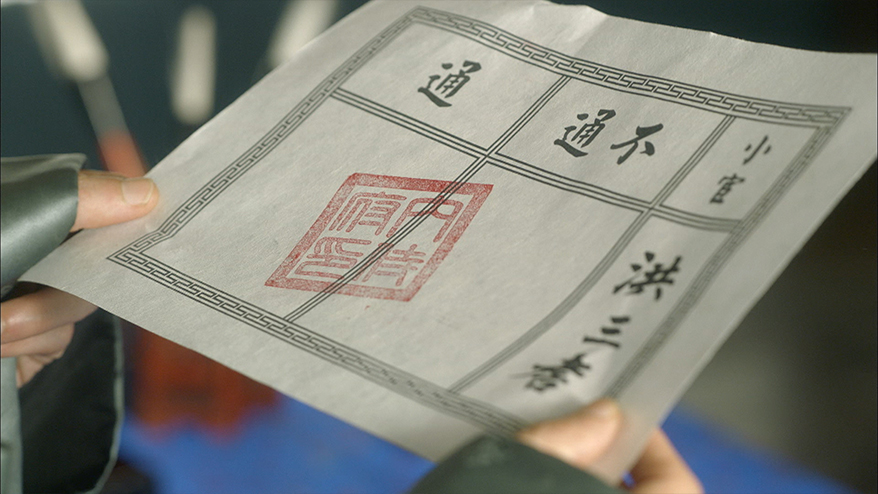 小官
洪三
不通
通
內侍府印